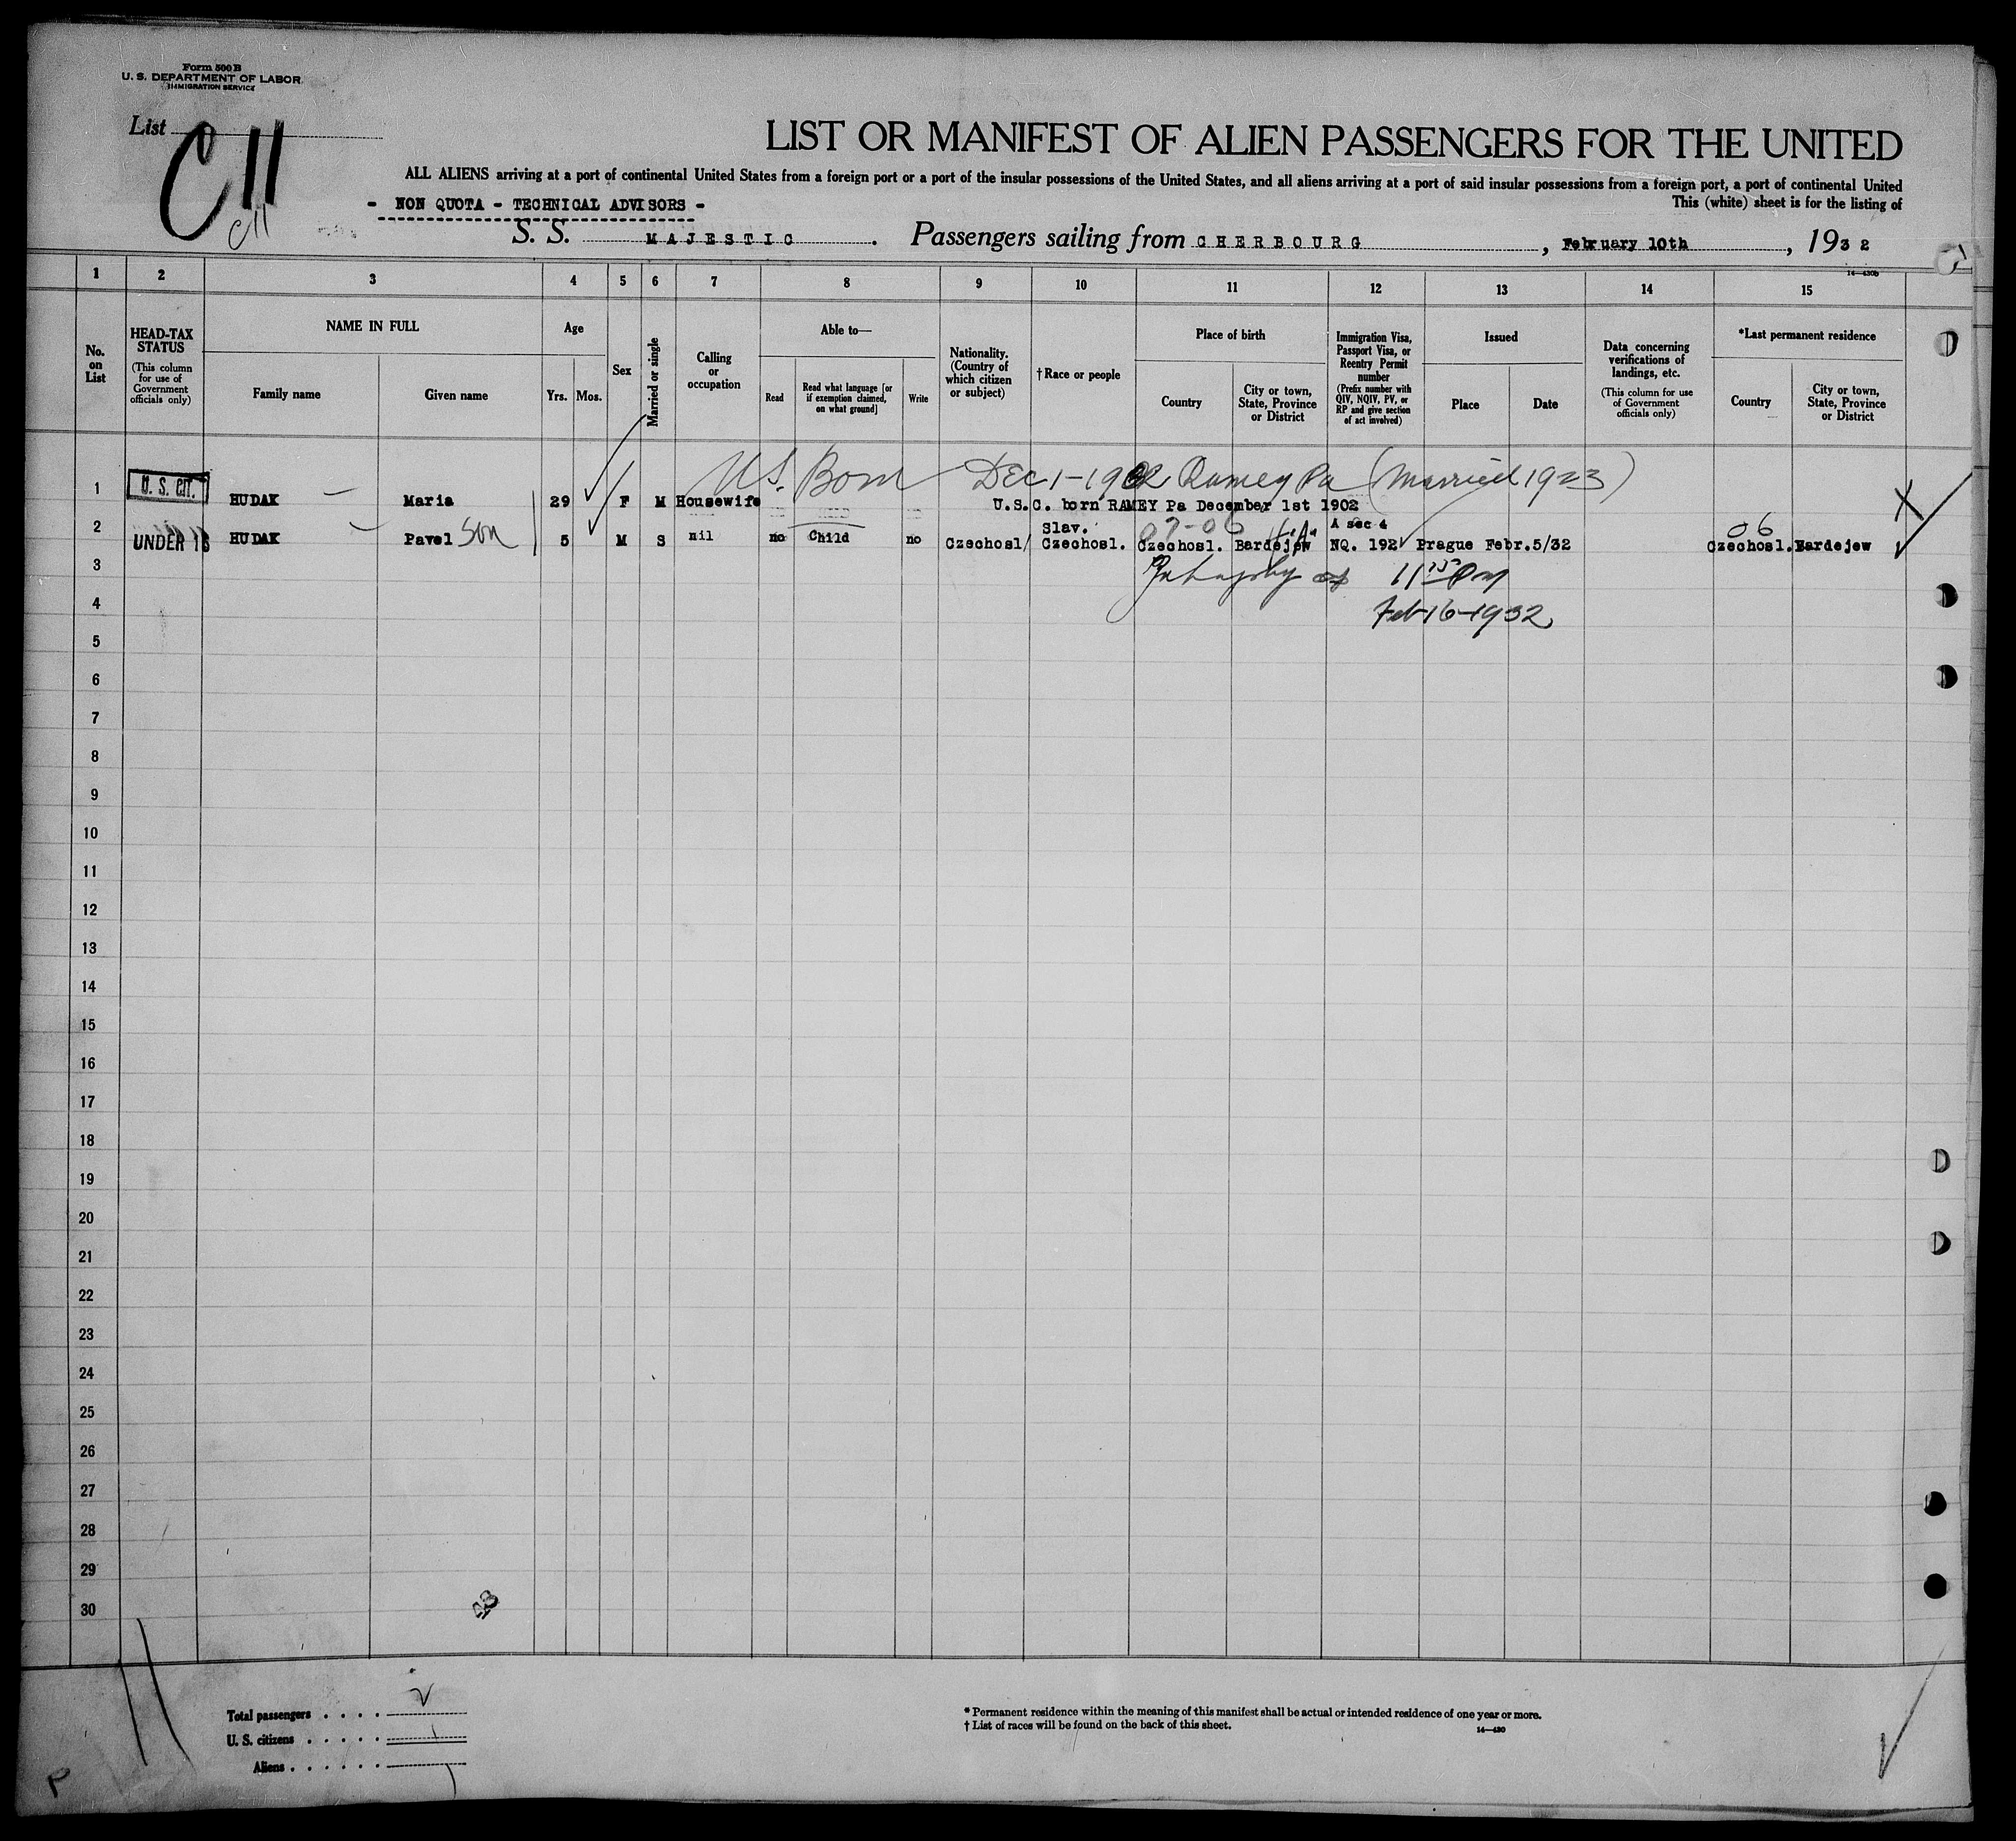 Form 500 B
U. S. DEPARTMENT OF LABOR
IMMIGRATION SERVICE
List
C11
C11
LIST OR MANIFEST OF ALIEN PASSENGERS FOR THE UNITED
ALL ALIENS arriving at a port of continental United States from a foreign port or a port of the insular possessions of the United States, and all aliens arriving at a port of said insular possessions from a foreign port, a port of continental United
- NON QUOTA - TECHNICAL ADVISORS -
This (white) sheet is for the listing of
S. S. MAJESTIC. Passengers sailing from CHERBOURG, February 10th, 1932
14-430b
1 2 3 4 5 6 7 8 9 10 11 12 13 14 15
No. on List
HEAD-TAX STATUS
(This column for use of Government officials only)
NAME IN FULL
Family name
Given name
Age
Yrs.
Mos.
Sex
Married or single
Calling or occupation
Able to—
Read
Read what language [or if exemption claimed, on what ground]
Write
Nationality. (Country of which citizen or subject)
†Race or people
Place of birth
Country
City or town, State, Province or District
Immigration Visa, Passport Visa, or Reentry Permit number
(Prefix number with QIV, NQIV, PV, or RP and give section of act involved)
Issued
Place
Date
Data concerning verifications of landings, etc.
(This column for use of Government officials only)
*Last permanent residence
Country
City or town, State, Province or District
US. Born DEC 1-1902 Ramey Pa (Married 1923)
1 U. S. CIT. HUDAK Maria 29 F M Housewife U.S.C. born RAMEY Pa December 1st 1902
Slav. 07-06 A sec 4 06
2 UNDER 16 HUDAK Pavel Son 5 M S nil no Child no Czechosl/ Czechosl. Czechosl. Bardejew NQ. 192 Prague Febr.5/32 Czechosl. Bardejew
X
3 11 15 PM
4 Feb-16-1932
5
6
7
8
9
10
11
12
13
14
15
16
17
18
19
20
21
22
23
24
25
26
27
28
29
30
Total passengers . . . . 2
U. S. citizens . . . . . 1
Aliens . . . . . . 1
* Permanent residence within the meaning of this manifest shall be actual or intended residence of one year or more.
† List of races will be found on the back of this sheet.
14-430
P